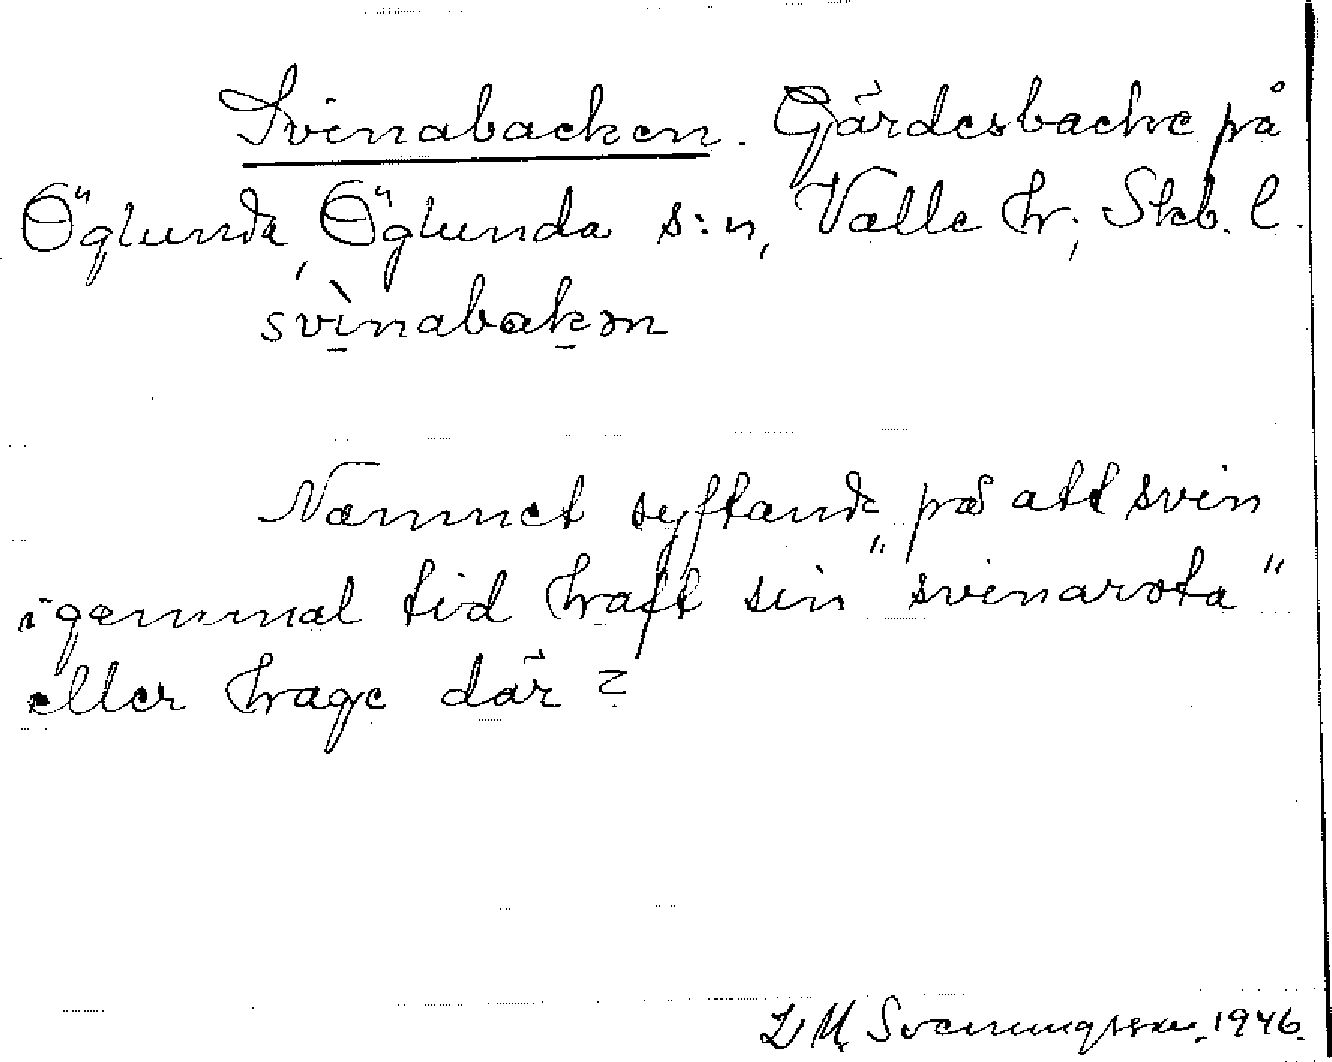 Svinabacken. Gärdesbacke på
Öglunda, Öglunda s:n, Valle hr, Skb. l.
svìnabakən
Namnet syftande på att svin
i gammal tid haft sin "svinarota"
eller hage där?
L M Svenungsson, 1946.